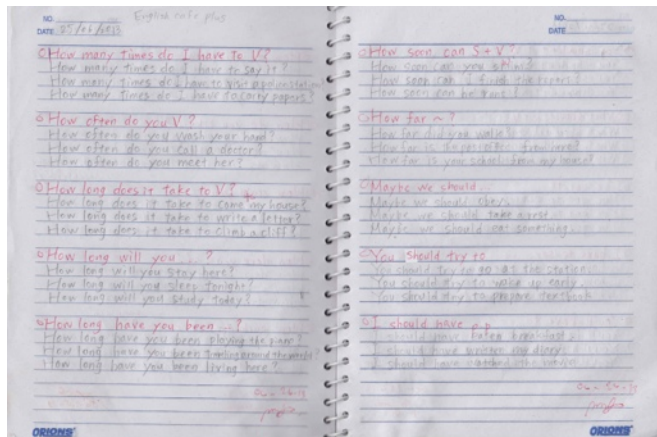 NO.
English cafe plus
DATE 25/06/2013
How many times do I have to V?
How many times do I have to say it?
How many times do I have to visit a police station
How many times do I have to carry papers?
How often do you V?
How often do you wash your hand?
How often do you call a doctor?
How often do you meet her?
How long does it take to V?
How long does it take to come to my house?
How long does it take to write a letter?
How long does it take to climb a cliff?
How long will you ...?
How long will you stay here?
How long will you sleep tonight?
How long will you study today?
How long have you been ...?
How long have you been playing the piano?
How long have you been traveling around the world?
How long have you been living here?
ORIONS
NO.
DATE
How soon can S + V?
How soon can you
How soon can I finish the report?
How soon can be
How far ~ ?
How far did you walk
How far is the post office from here?
How far is your school from my house?
Maybe we should...
Maybe we should
Maybe we should take a rest
Maybe we should eat something
You should try to
You should try to go at the station
You should try to wake up early.
You should try to prepare textbook
I should have p.p
I should have eaten breakfast
I should have written my diary
I should have watched the news
ORIONS